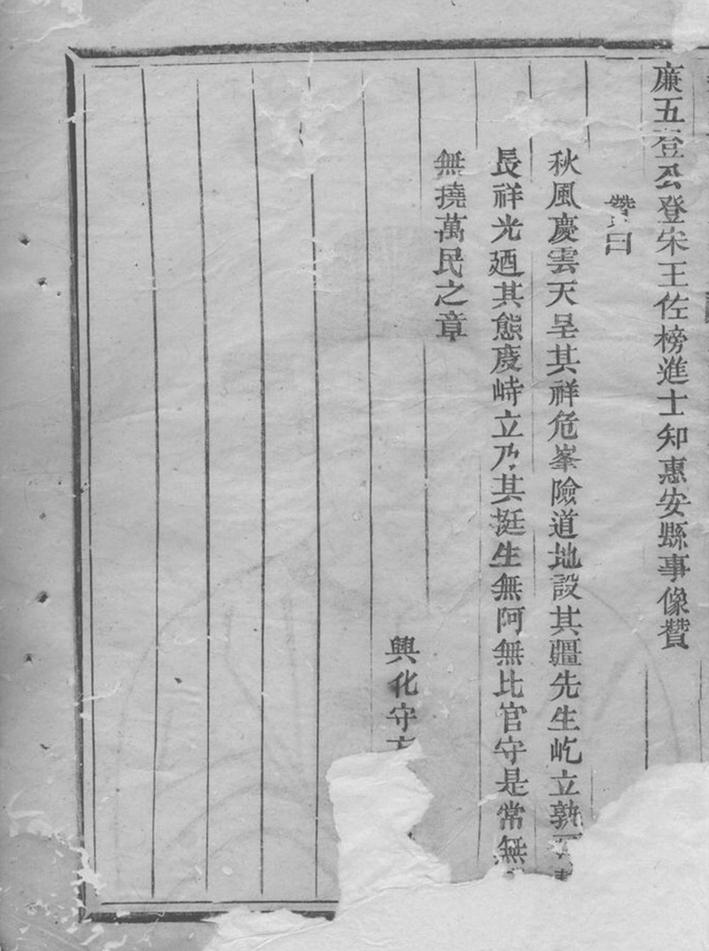 廉五登公登宋王佐榜進士知惠安縣事像贊
贊曰
秋風慶雲天呈其祥危峯險道地設其疆先生屹立孰
長祥光廼其態度峙立乃其挺生無阿無比官守是常無
無撓萬民之章
興化守方